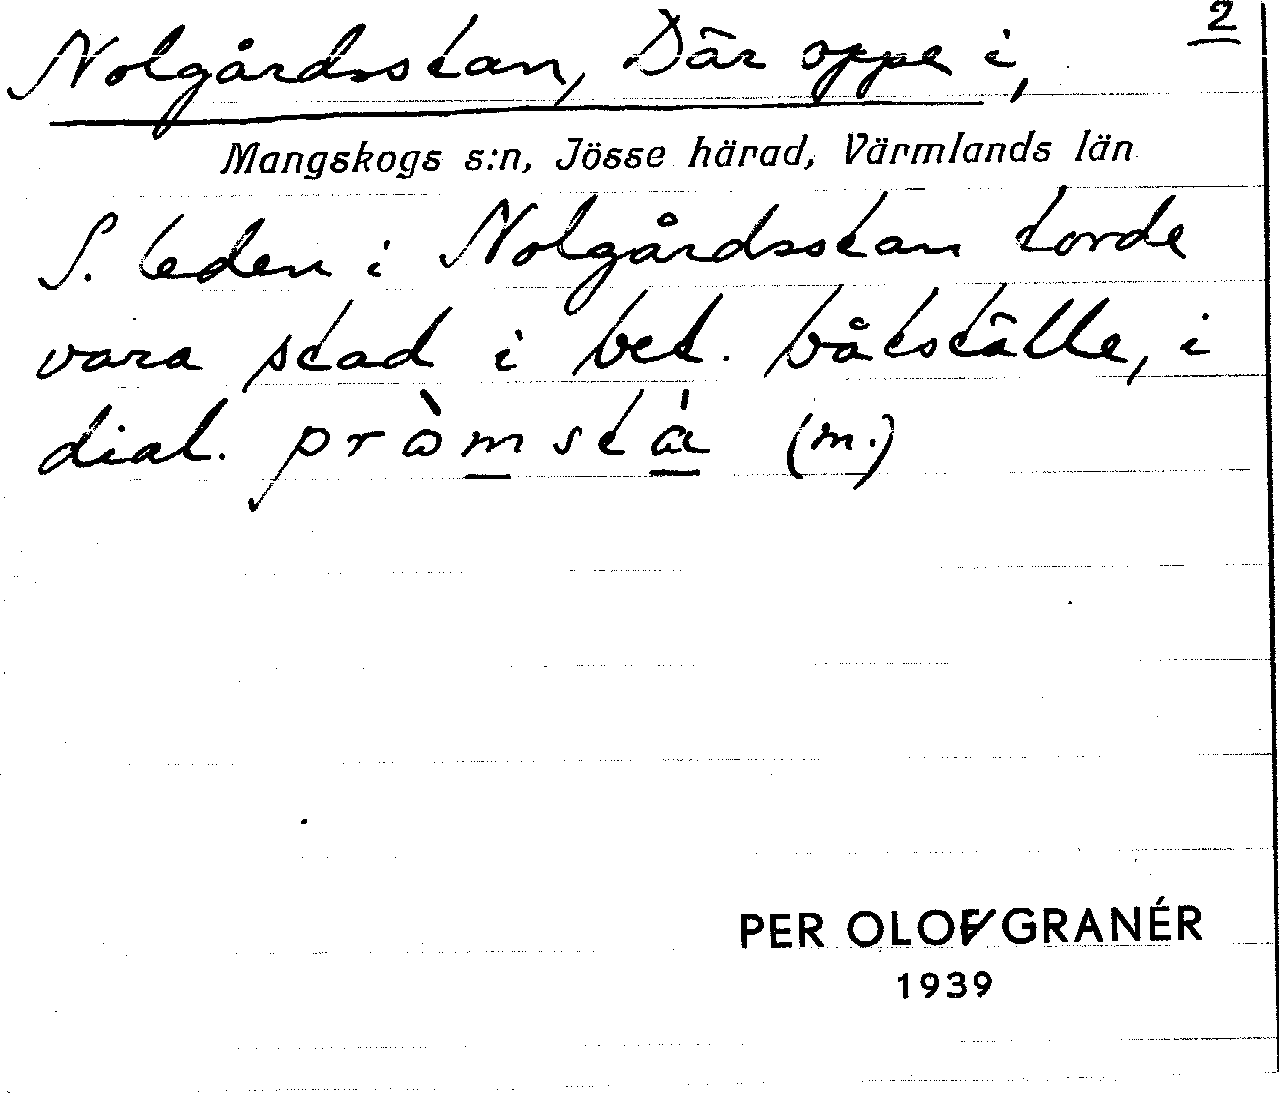 2
Nolgårdsstan, Där oppe i,
Mangskogs s:n, Jösse härad, Värmlands län
S. leden i Nolgårdsstan torde
vara stad i bet. båtställe, i
dial. pròmstá (m.)
PER OLOF GRANÉR
1939